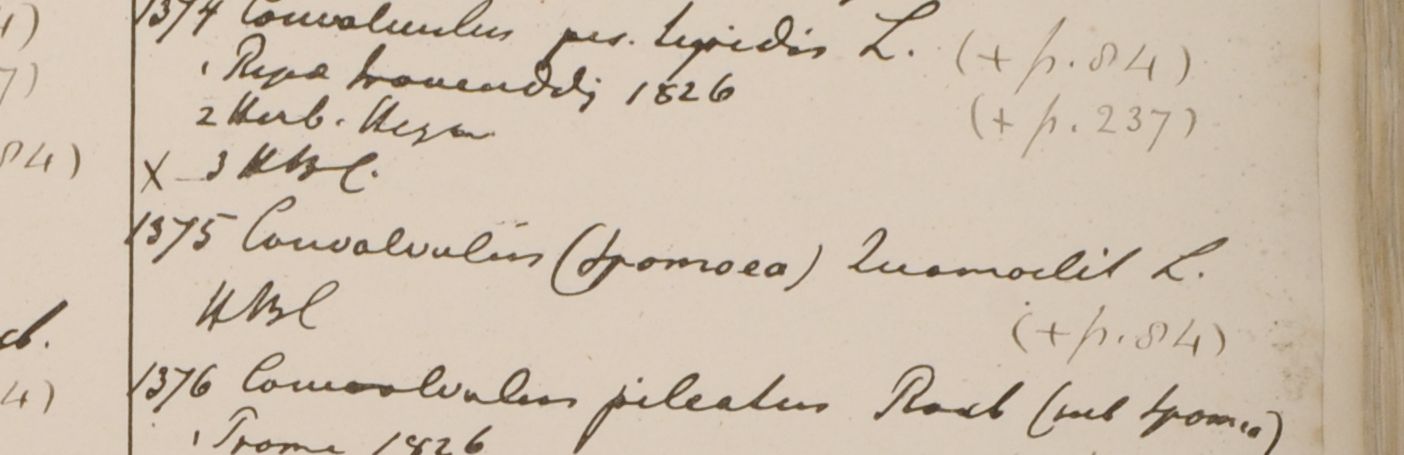 4)
7)
84)
ch.
4)
1374 Convolvulus pes tigridis L. (+ p. 84)
1 Ripa Irawaddi 1826 (+ p. 237)
2 Herb. Heyne
X 3 HBC.
1375 Convolvulus (Ipomoea) Quamoclit L.
HBC (+ p. 84)
1376 Convolvulus pileatus Roxb (sub Ipomea)
1 Prome 1826